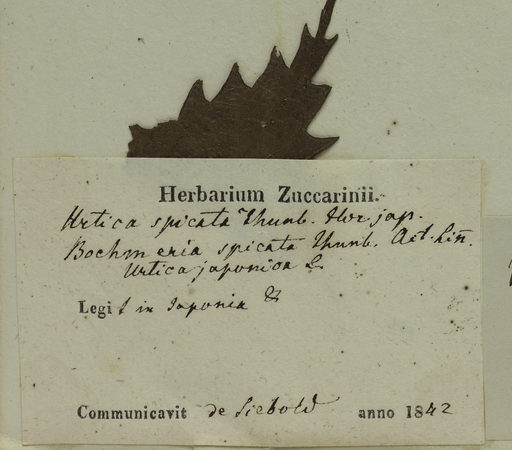 Herbarium Zuccarinii.
Urtica spicata Thunb. flor. jap.
Boehmeria spicata Thunb. Act. Lin̄.
Urtica japonica L.
Legit in Japonia
Communicavit de Siebold anno 1842